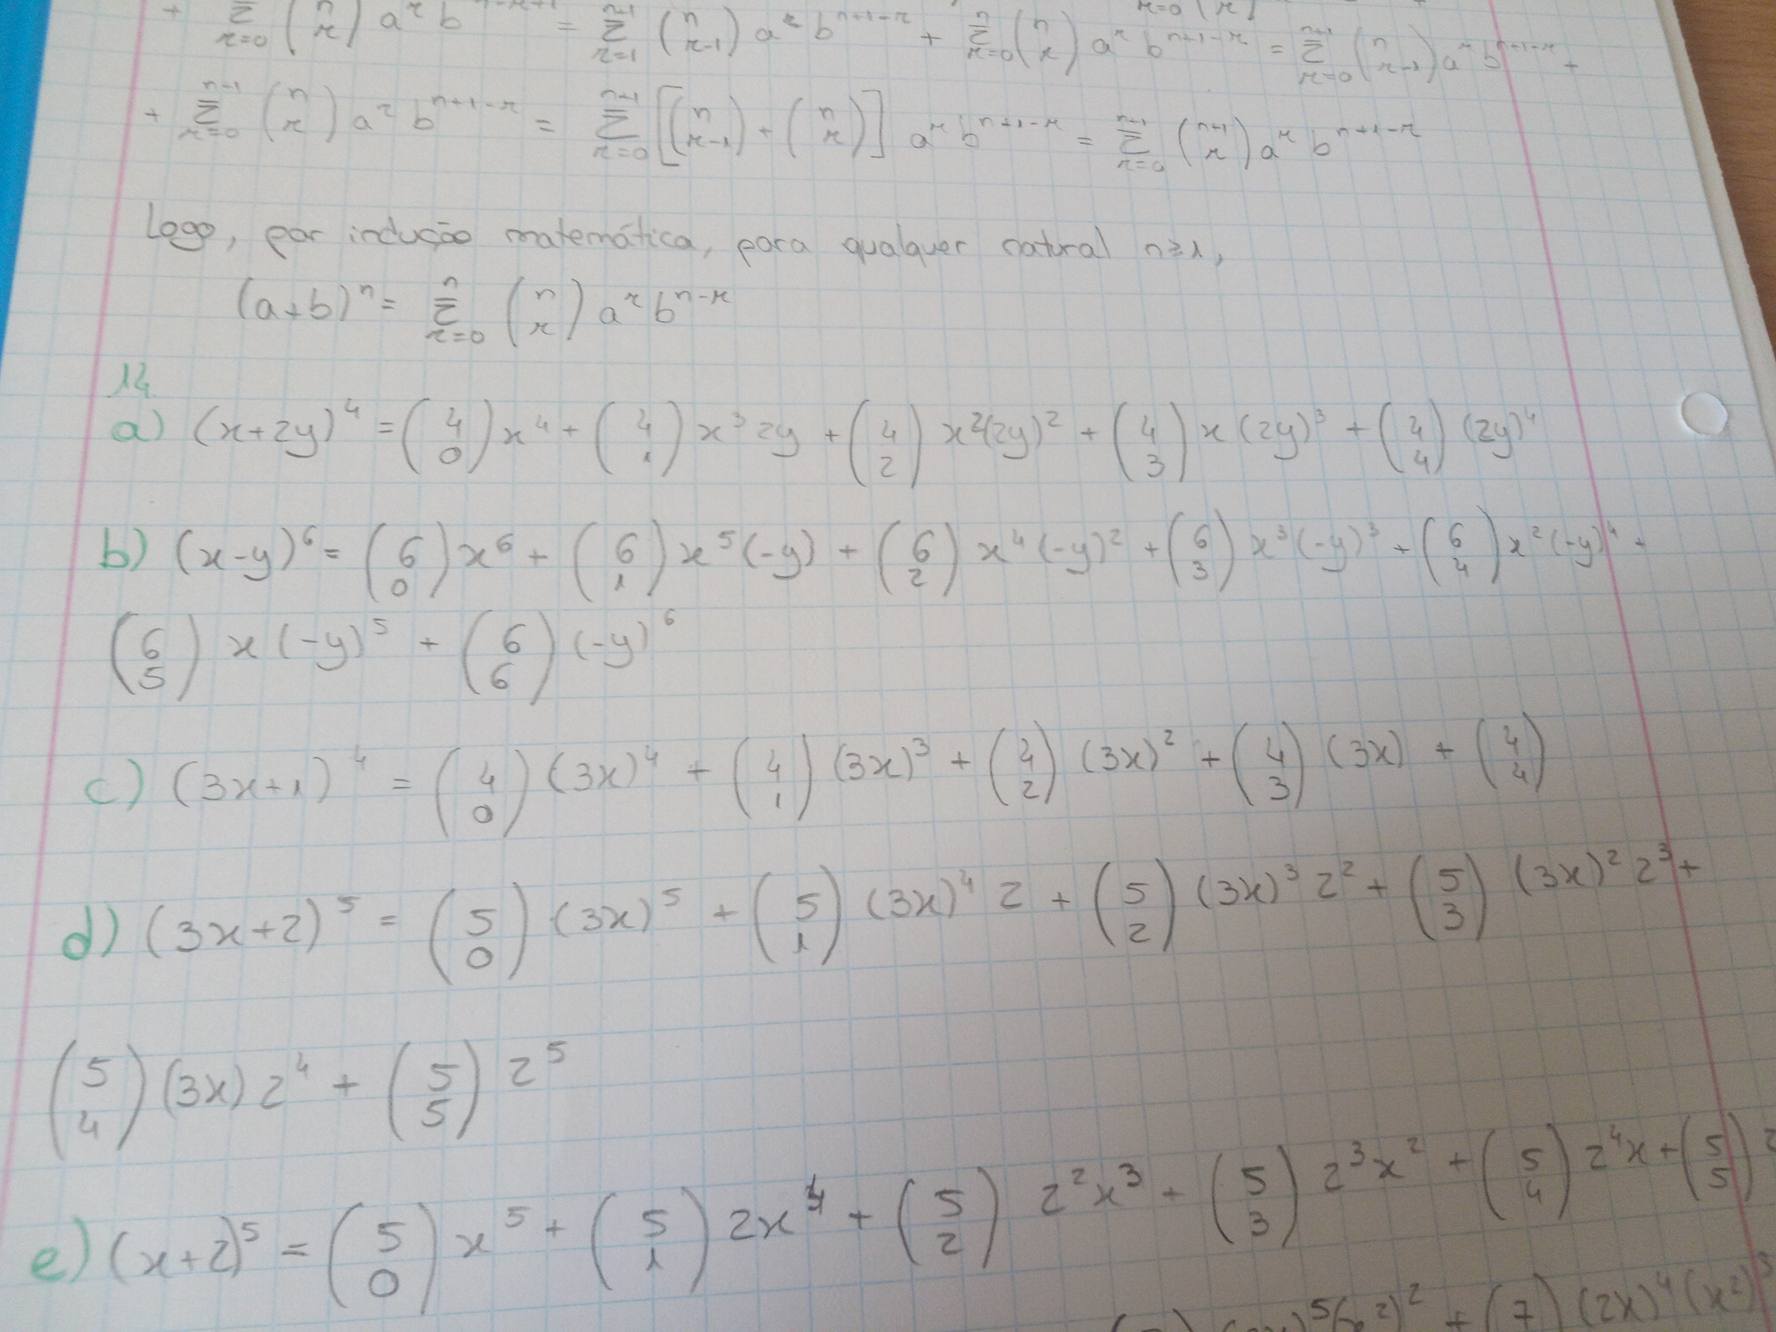 + Σ_{r=0} (n r) a^r b^{n-r+1} = Σ_{r=1}^{n+1} (n r-1) a^r b^{n+1-r} + Σ_{r=0}^{n} (n r) a^r b^{n+1-r} = Σ_{r=0}^{n+1} (n r-1) a^r b^{n+1-r} +
+ Σ_{r=0}^{n-1} (n r) a^r b^{n+1-r} = Σ_{r=0}^{n+1} [(n r-1) + (n r)] a^r b^{n+1-r} = Σ_{r=0}^{n+1} (n+1 r) a^r b^{n+1-r}
Logo, por indução matemática, para qualquer natural n≥1,
(a+b)^n = Σ_{r=0}^{n} (n r) a^r b^{n-r}
14
a) (x+2y)^4 = (4 0) x^4 + (4 1) x^3 2y + (4 2) x^2 (2y)^2 + (4 3) x (2y)^3 + (4 4) (2y)^4
b) (x-y)^6 = (6 0) x^6 + (6 1) x^5 (-y) + (6 2) x^4 (-y)^2 + (6 3) x^3 (-y)^3 + (6 4) x^2 (-y)^4 +
(6 5) x (-y)^5 + (6 6) (-y)^6
c) (3x+1)^4 = (4 0) (3x)^4 + (4 1) (3x)^3 + (4 2) (3x)^2 + (4 3) (3x) + (4 4)
d) (3x+2)^5 = (5 0) (3x)^5 + (5 1) (3x)^4 2 + (5 2) (3x)^3 2^2 + (5 3) (3x)^2 2^3 +
(5 4) (3x) 2^4 + (5 5) 2^5
e) (x+2)^5 = (5 0) x^5 + (5 1) 2x^4 + (5 2) 2^2 x^3 + (5 3) 2^3 x^2 + (5 4) 2^4 x + (5 5) 2
+ (7 (2x)^4 (x^2)^3